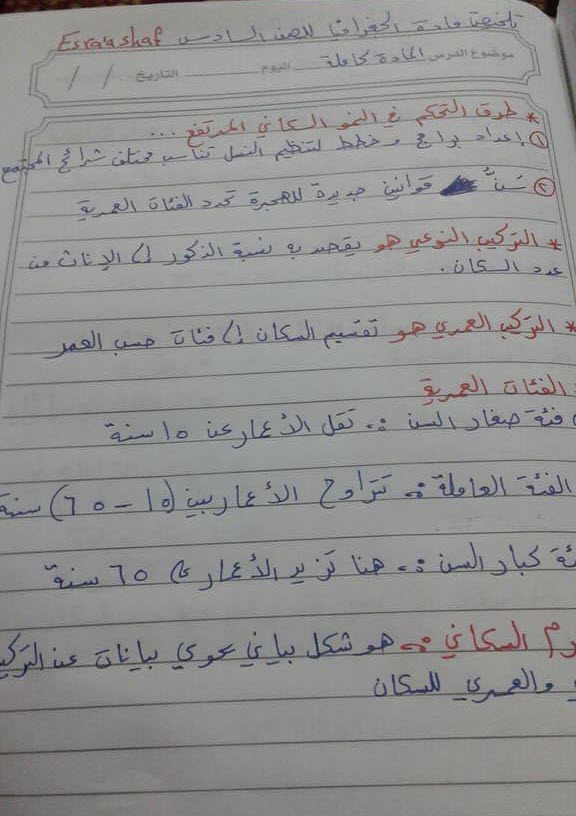 تلخيص مادة الجغرافيا للصف السادس Esra'a ashaf
موضوع الدرس المادة كاملة اليوم التاريخ / /
* طرق التحكم في النمو السكاني المرتفع ...
① إعداد برامج وخطط لتنظيم النسل تناسب مختلف شرائح المجتمع
② سَنُّ قوانين جديدة للهجرة تحدد الفئات العمرية
* التركيب النوعي هو يقصد به نسبة الذكور إلى الإناث من
عدد السكان .
* التركيب العمري هو تقسيم السكان إلى فئات حسب العمر
الفئات العمرية
فئة صغار السن :- تقل الأعمار عن ١٥ سنة
الفئة العاملة :- تتراوح الأعمار بين (١٥ - ٦٥) سنة
ئة كبار السن :- هنا تزيد الأعمار على ٦٥ سنة
رم السكاني :- هو شكل بياني يحوي بيانات عن التركيب
والعمري للسكان